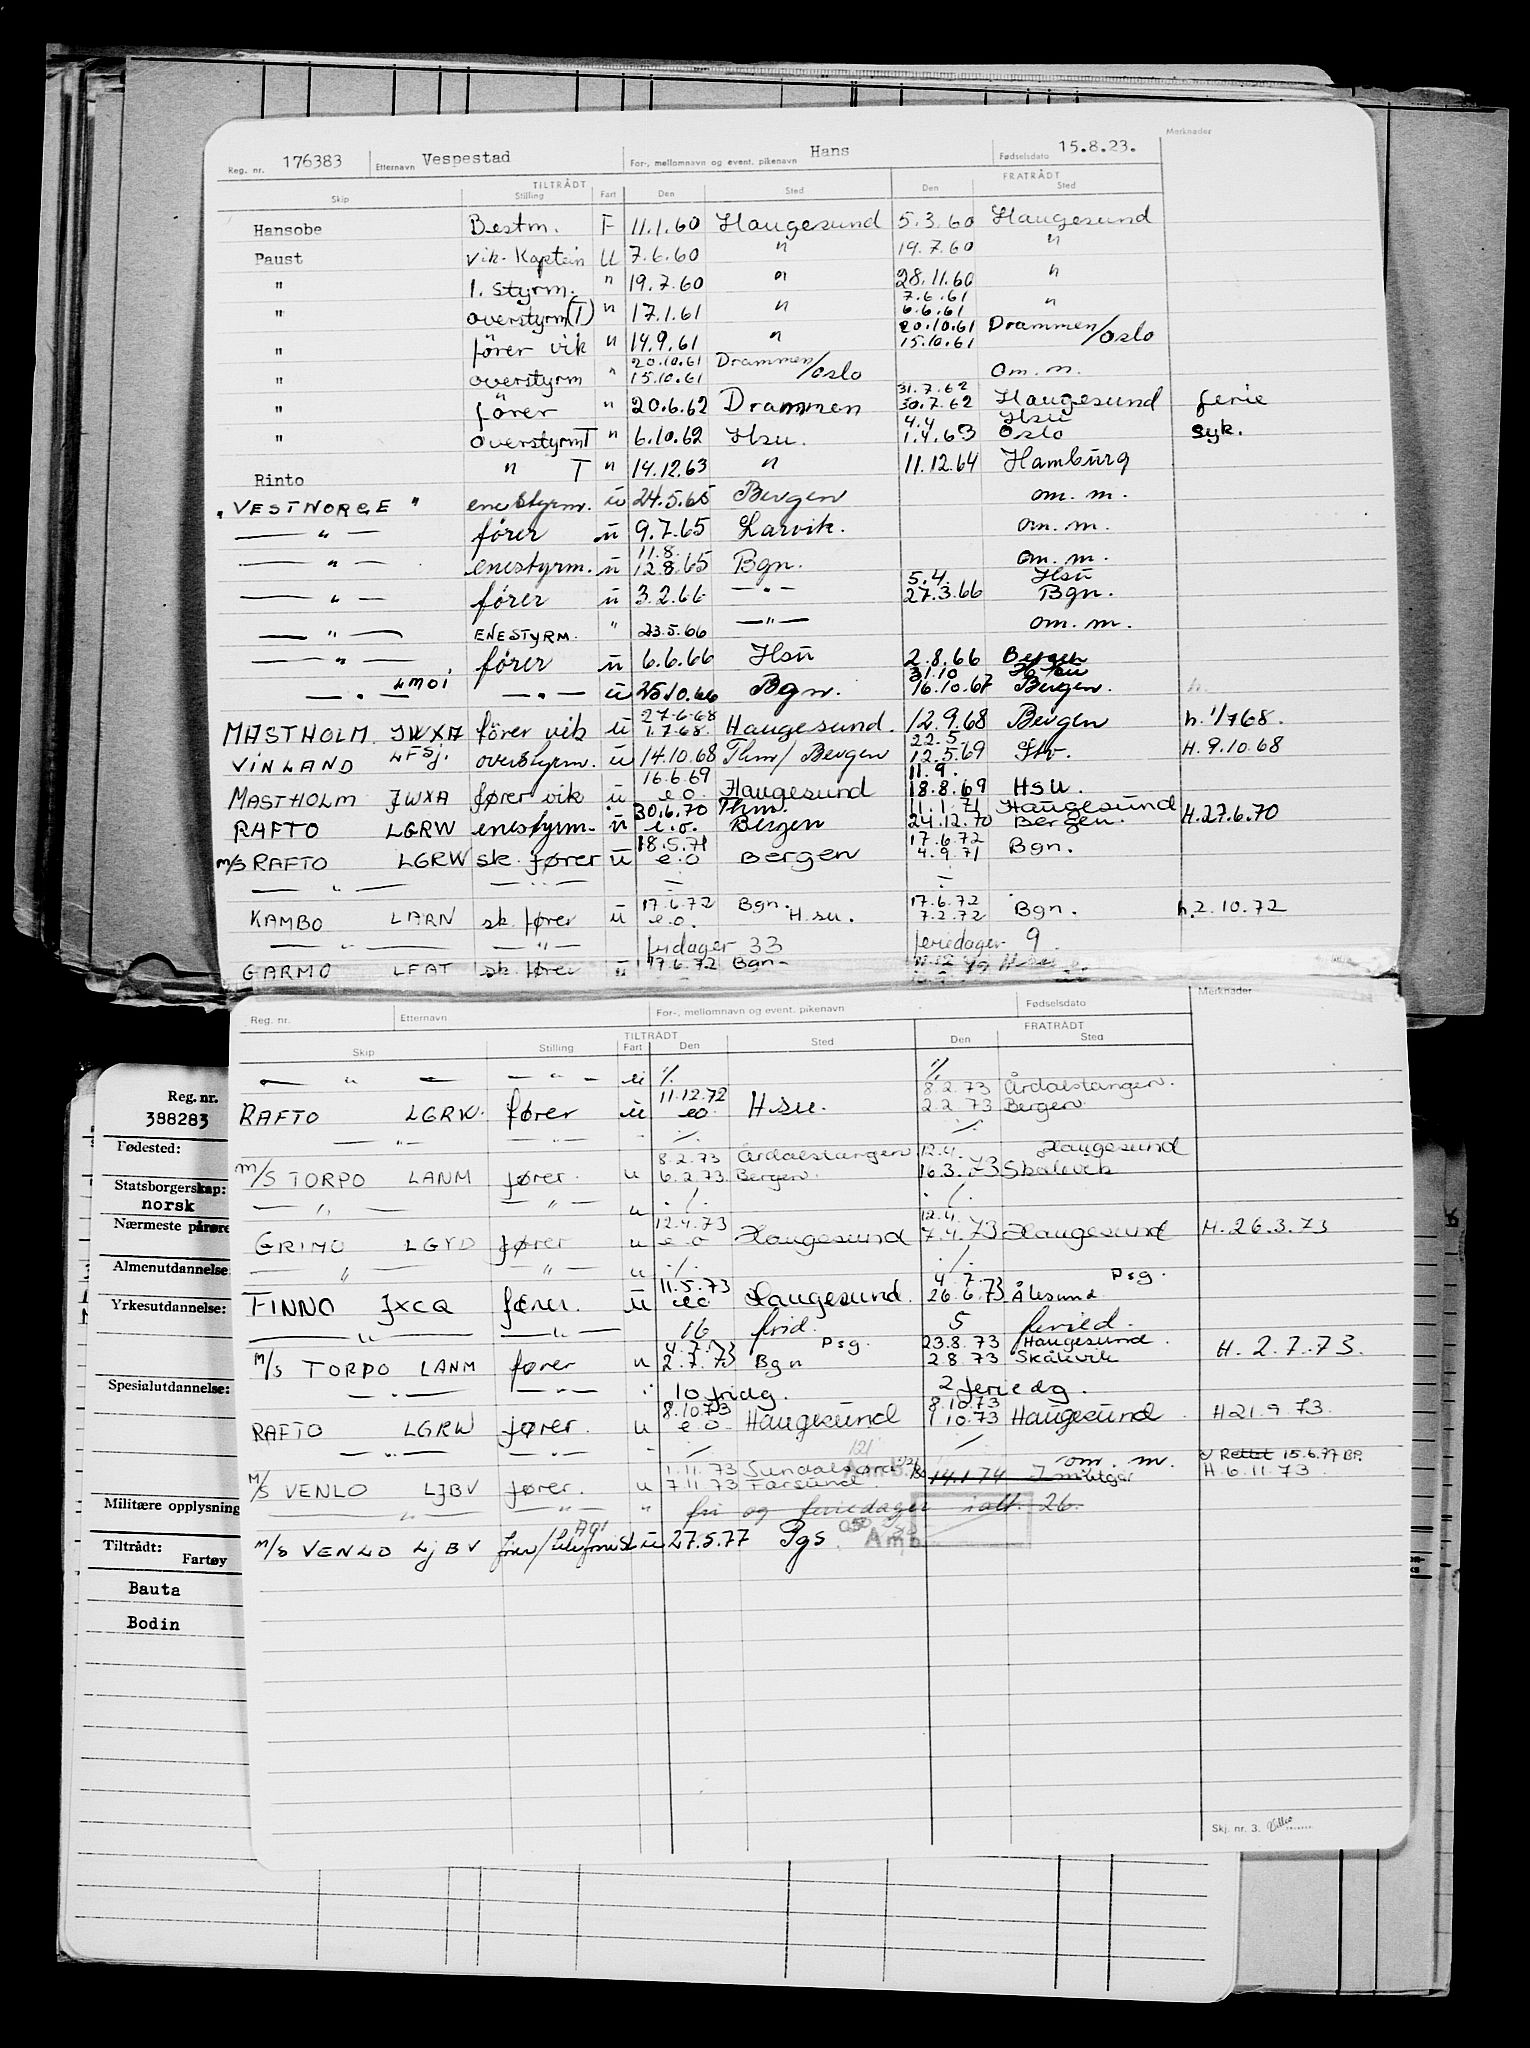 Merknader
Reg. nr. 176383 Etternavn Vespestad For-, mellomnavn og event. pikenavn Hans Fødselsdato 15.8.23.
TILTRÅDT FRATRÅDT
Skip Stilling Fart Den Sted Den Sted
Hansobe Bestm. F 11.1.60 Haugesund 5.3.60 Haugesund
Paust vik. Kaptein U 7.6.60 " 19.7.60 "
" 1. styrm. " 19.7.60 " 28.11.60 "
7.6.61
" overstyrm(T) " 17.1.61 " 6.6.61 "
20.10.61 Drammen/Oslo
" fører vik " 14.9.61 " 15.10.61
20.10.61 Drammen/Oslo
" overstyrm " 15.10.61 om. m.
31.7.62
" fører " 20.6.62 Drammen 30.7.62 Haugesund ferie
4.4 Hsu
" overstyrmT " 6.10.62 Hsu. 1.4.63 Oslo syk.
Rinto " T " 14.12.63 " 11.12.64 Hamburg
"VESTNORGE" enestyrm. u 24.5.65 Bergen om. m.
— " — fører u 9.7.65 Larvik. om. m.
11.8.
— " — enestyrm. u 12.8.65 Bgn. om. m.
5.4. Hsu
— " — fører u 3.2.66 — " — 27.3.66 Bgn.
— " — ENESTYRM. " 23.5.66 — " — om. m.
— " — fører u 6.6.66 Hsu 2.8.66 Bergen
LMOI 31.10
— " — — " — u 25.10.66 Bgn. 16.10.67 Bergen.
27.6.68
MASTHOLM JWXA fører vik u 1.7.68. Haugesund. 12.9.68 Bergen h. 1/7 68.
22.5
VINLAND LFSJ. overstyrm. u 14.10.68 Thm/ Bergen 12.5.69 H. 9.10.68
16.6.69 11.9.
MASTHOLM JWXA fører vik u e.o. Haugesund 18.8.69 Hsu.
30.6.70 Thm. 11.1.71 Haugesund
RAFTO LGRW enestyrm. u e.o. Bergen 24.12.70 Bergen. H.27.6.70
18.5.71 17.6.72
m/s RAFTO LGRW sk. fører u e.o Bergen 4.9.71 Bgn.
— " — — " —
17.6.72 Bgn. 17.6.72
KAMBO LARN sk. fører u e.o. H.su. 7.2.72 Bgn. h.2.10.72
— " — — " — fridager 33 feriedager 9.
GARMO LFAT sk. fører u 17.6.72 Bgn.
Reg. nr. Etternavn For-, mellomnavn og event. pikenavn Fødselsdato Merknader
TILTRÅDT FRATRÅDT
Skip Stilling Fart Den Sted Den Sted
— " — — " — u ./. ./.
11.12.72 8.2.73 Årdalstangen.
RAFTO LGRW. fører u eo H.su. 2.2.73 Bergen
— " — — " — ./. ./.
8.2.73 Årdalstangen 12.4. Haugesund
m/s TORPO LANM fører. u 6.2.73 Bergen. 16.3.73 Skålevik
— " — — " — u ./. ./.
12.4.73 12.4.
GRIMO LGYD fører u e o Haugesund 7.4.73 Haugesund H. 26.3.73
— " — — " — u ./. ./.
11.5.73 4.7.73 Psg.
FINNO JXCQ fører. u eo Haugesund. 26.6.73 Ålesund
— " — — " — 16 frid. 5 feried.
4.7.73 Psg. 23.8.73 Haugesund.
m/s TORPO LANM fører u 2.7.73 Bgn 2.8.73 Skålevik H. 2.7.73.
— " — — " — 10 fridg. 2 feriedg.
8.10.73 8.10.73
RAFTO LGRW fører. u e o Haugesund 1.10.73 Haugesund. H 21.9.73.
— " — — " — ./. ./.
1.11.73 Sundalsøra om. m. Rettet 15.6.77 BP.
M/S VENLO LJBV fører. u 7.11.73 Farsund. 14.1.74 H.6.11.73.
— " — — " — " fri og feriedager ialt. 26.
M/S VENLO LJBV u 27.5.77 Pgs.
Amb.
Skj. nr. 3.
Reg. nr.
388283
Fødested:
Statsborgerskap:
norsk
Nærmeste pårøre
Almenutdannelse
Yrkesutdannelse:
Spesialutdannelse:
Militære opplysning
Tiltrådt:
Fartøy
Bauta
Bodin